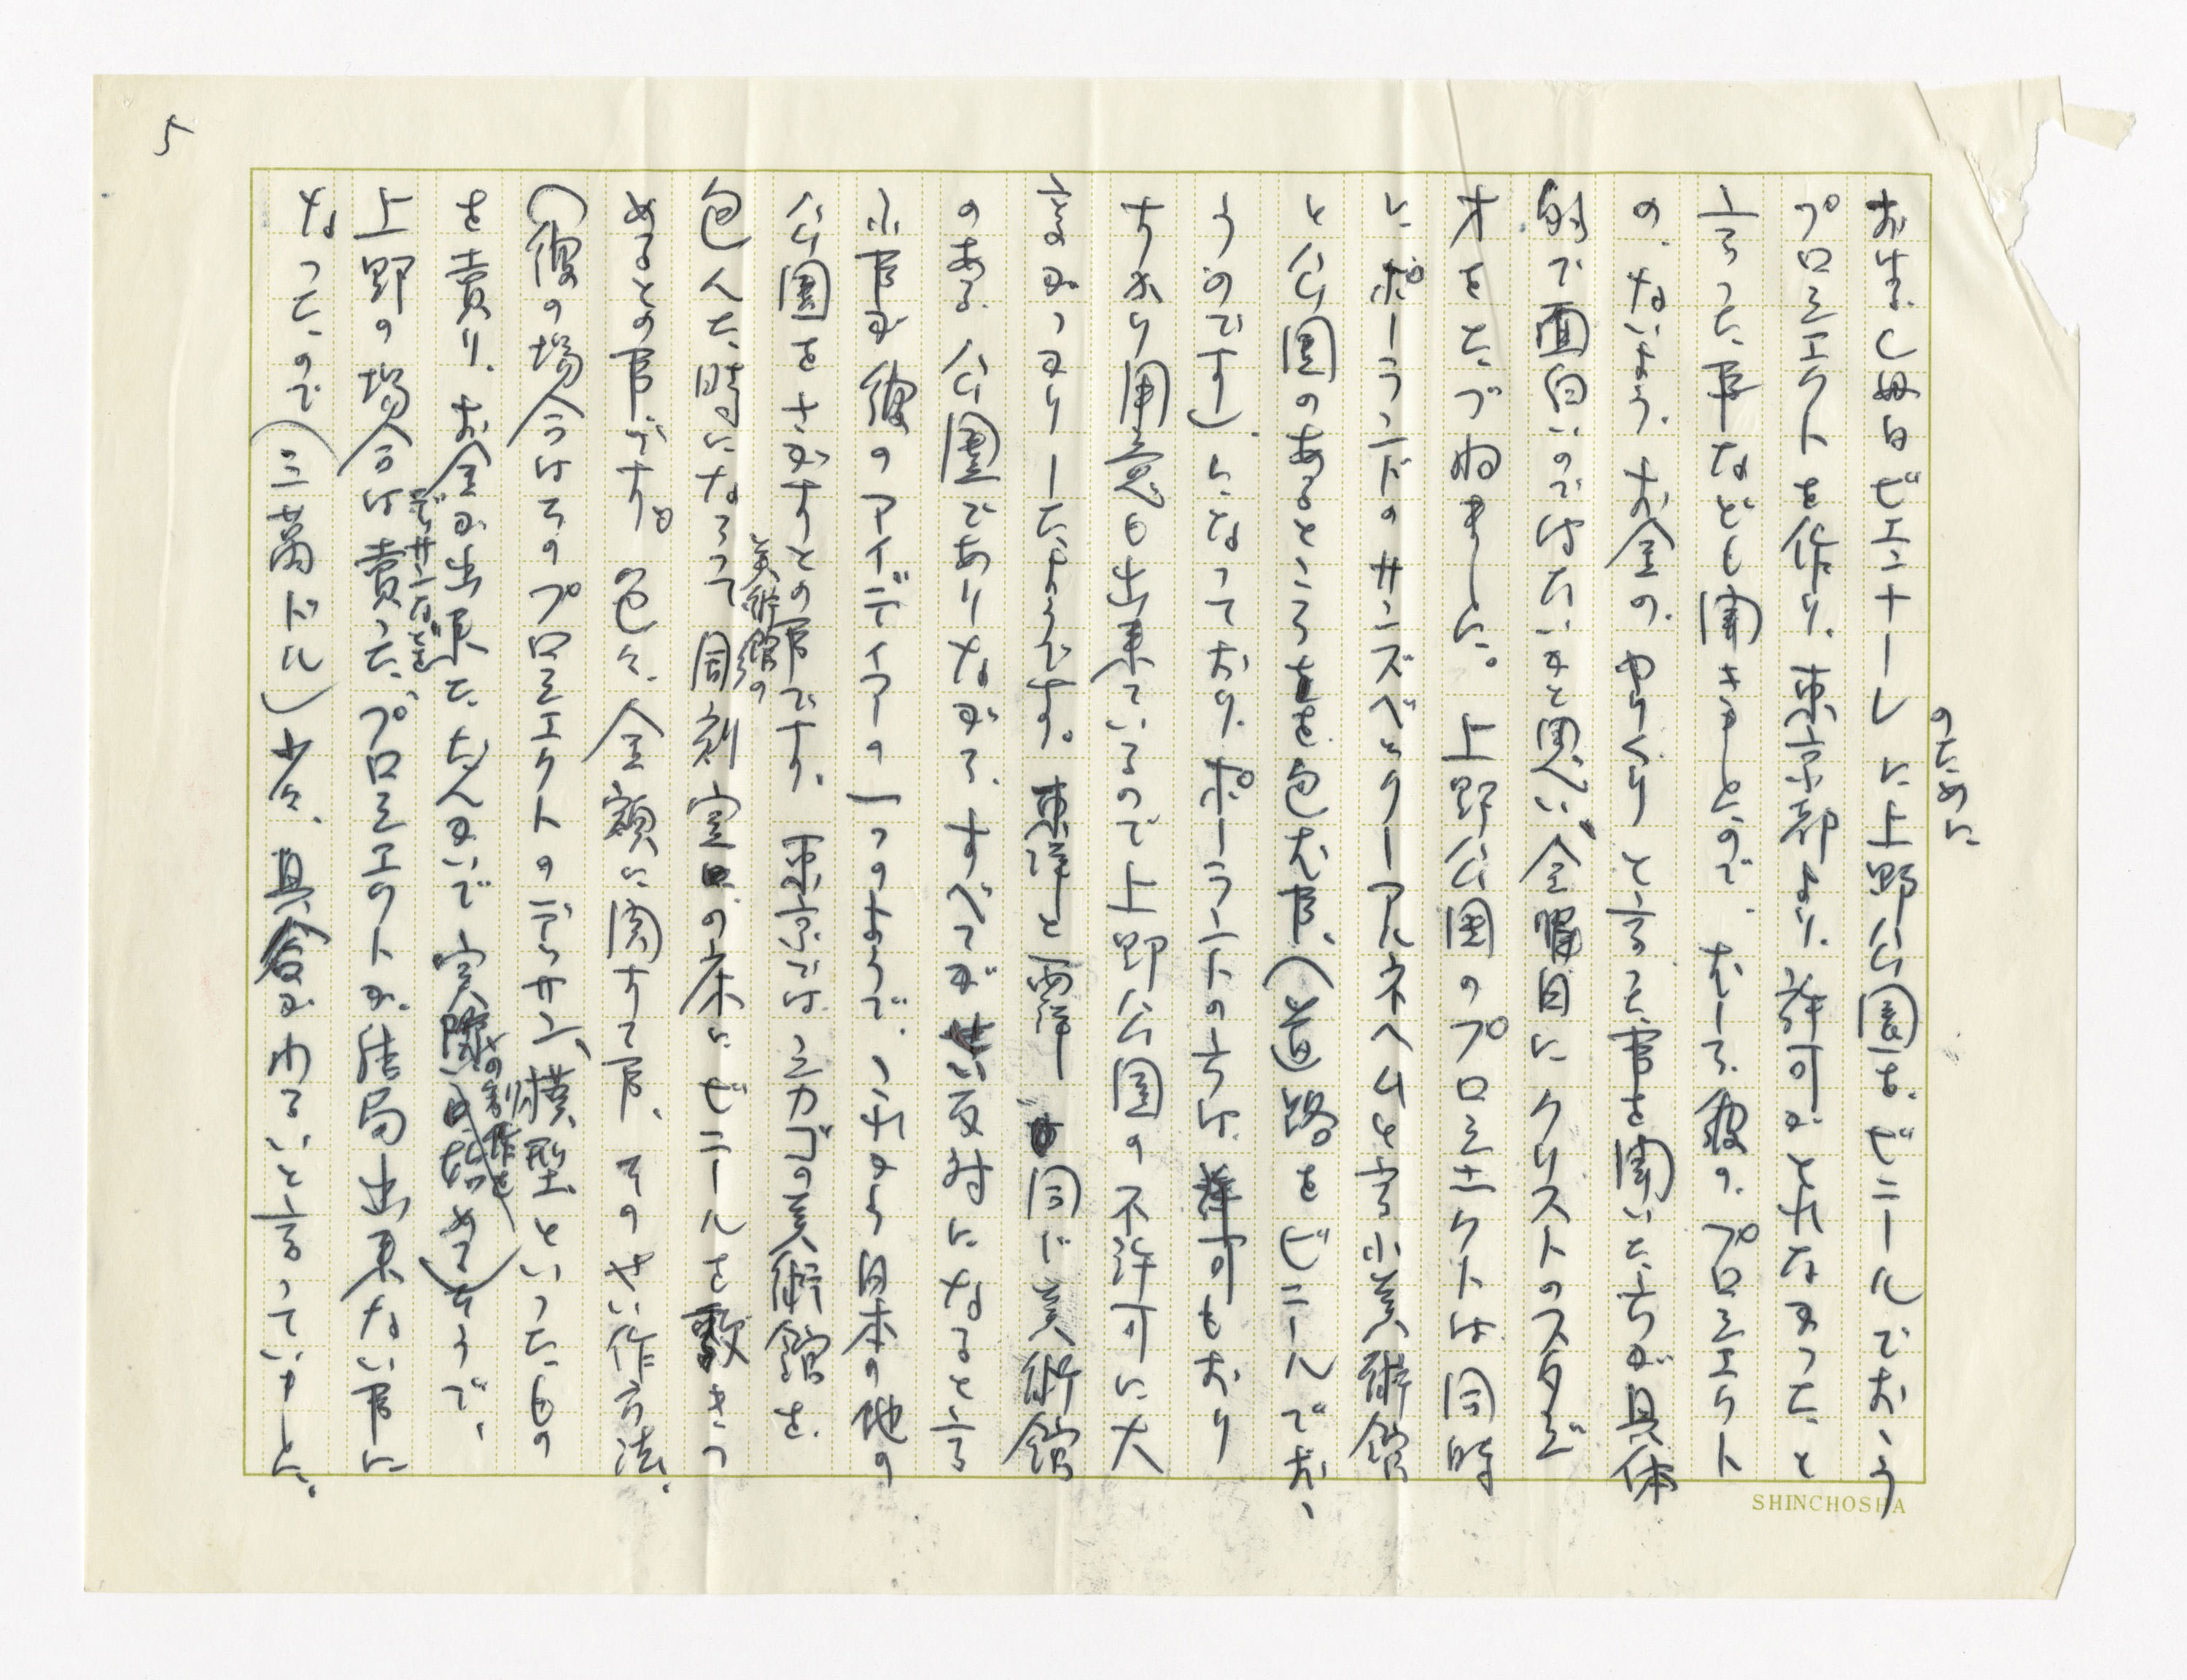 5
のために
おまし毎日ビエンナーレに上野公園を、ビニールでおゝう
プロジェクトを作り、東京都より、許可がとれなかったと
言った事なども聞きましたので、むしろ彼の、プロジェクト
の、ないよう、お金の、やりくりと言った事を聞いた方が具体
的で面白いのではないかと思い、金曜日にクリストのスタジ
オをたづねました。上野公園のプロジェクトは同時
に、ポーランドのサンズベックアルネヘムと言う小美術館
と公園のあるところを包む事、(道路をビニールでおゝ
うのです)、になっており、ポーランドの方は、許可もおり
すっかり用意も出来ているので上野公園の不許可に大
変がっかりしたようです。東洋と西洋 同じ美術館
のある、公園でありながら、すべてが 反対になると言
ふ事が彼のアイディアの一つのようで、これから日本の他の
公園をさがすとの事です。東京ではミカゴの美術館を、
美術館の
包んだ時になって同刻室内の床にビニールを敷きつ
めるとの事です。色々、金額に関する事、そのせい作方法、
(彼の場合はそのプロジェクトのデッサン、模型といったもの
を売り、お金が出来たなんかいで実際 始める)そうで、
の制作を
上野の場合は売った、プロジェクトが、結局出来ない事に
デッサンなどを
なったので)(三萬ドル)少々、具合がわるいと言っていました。
SHINCHOSHA